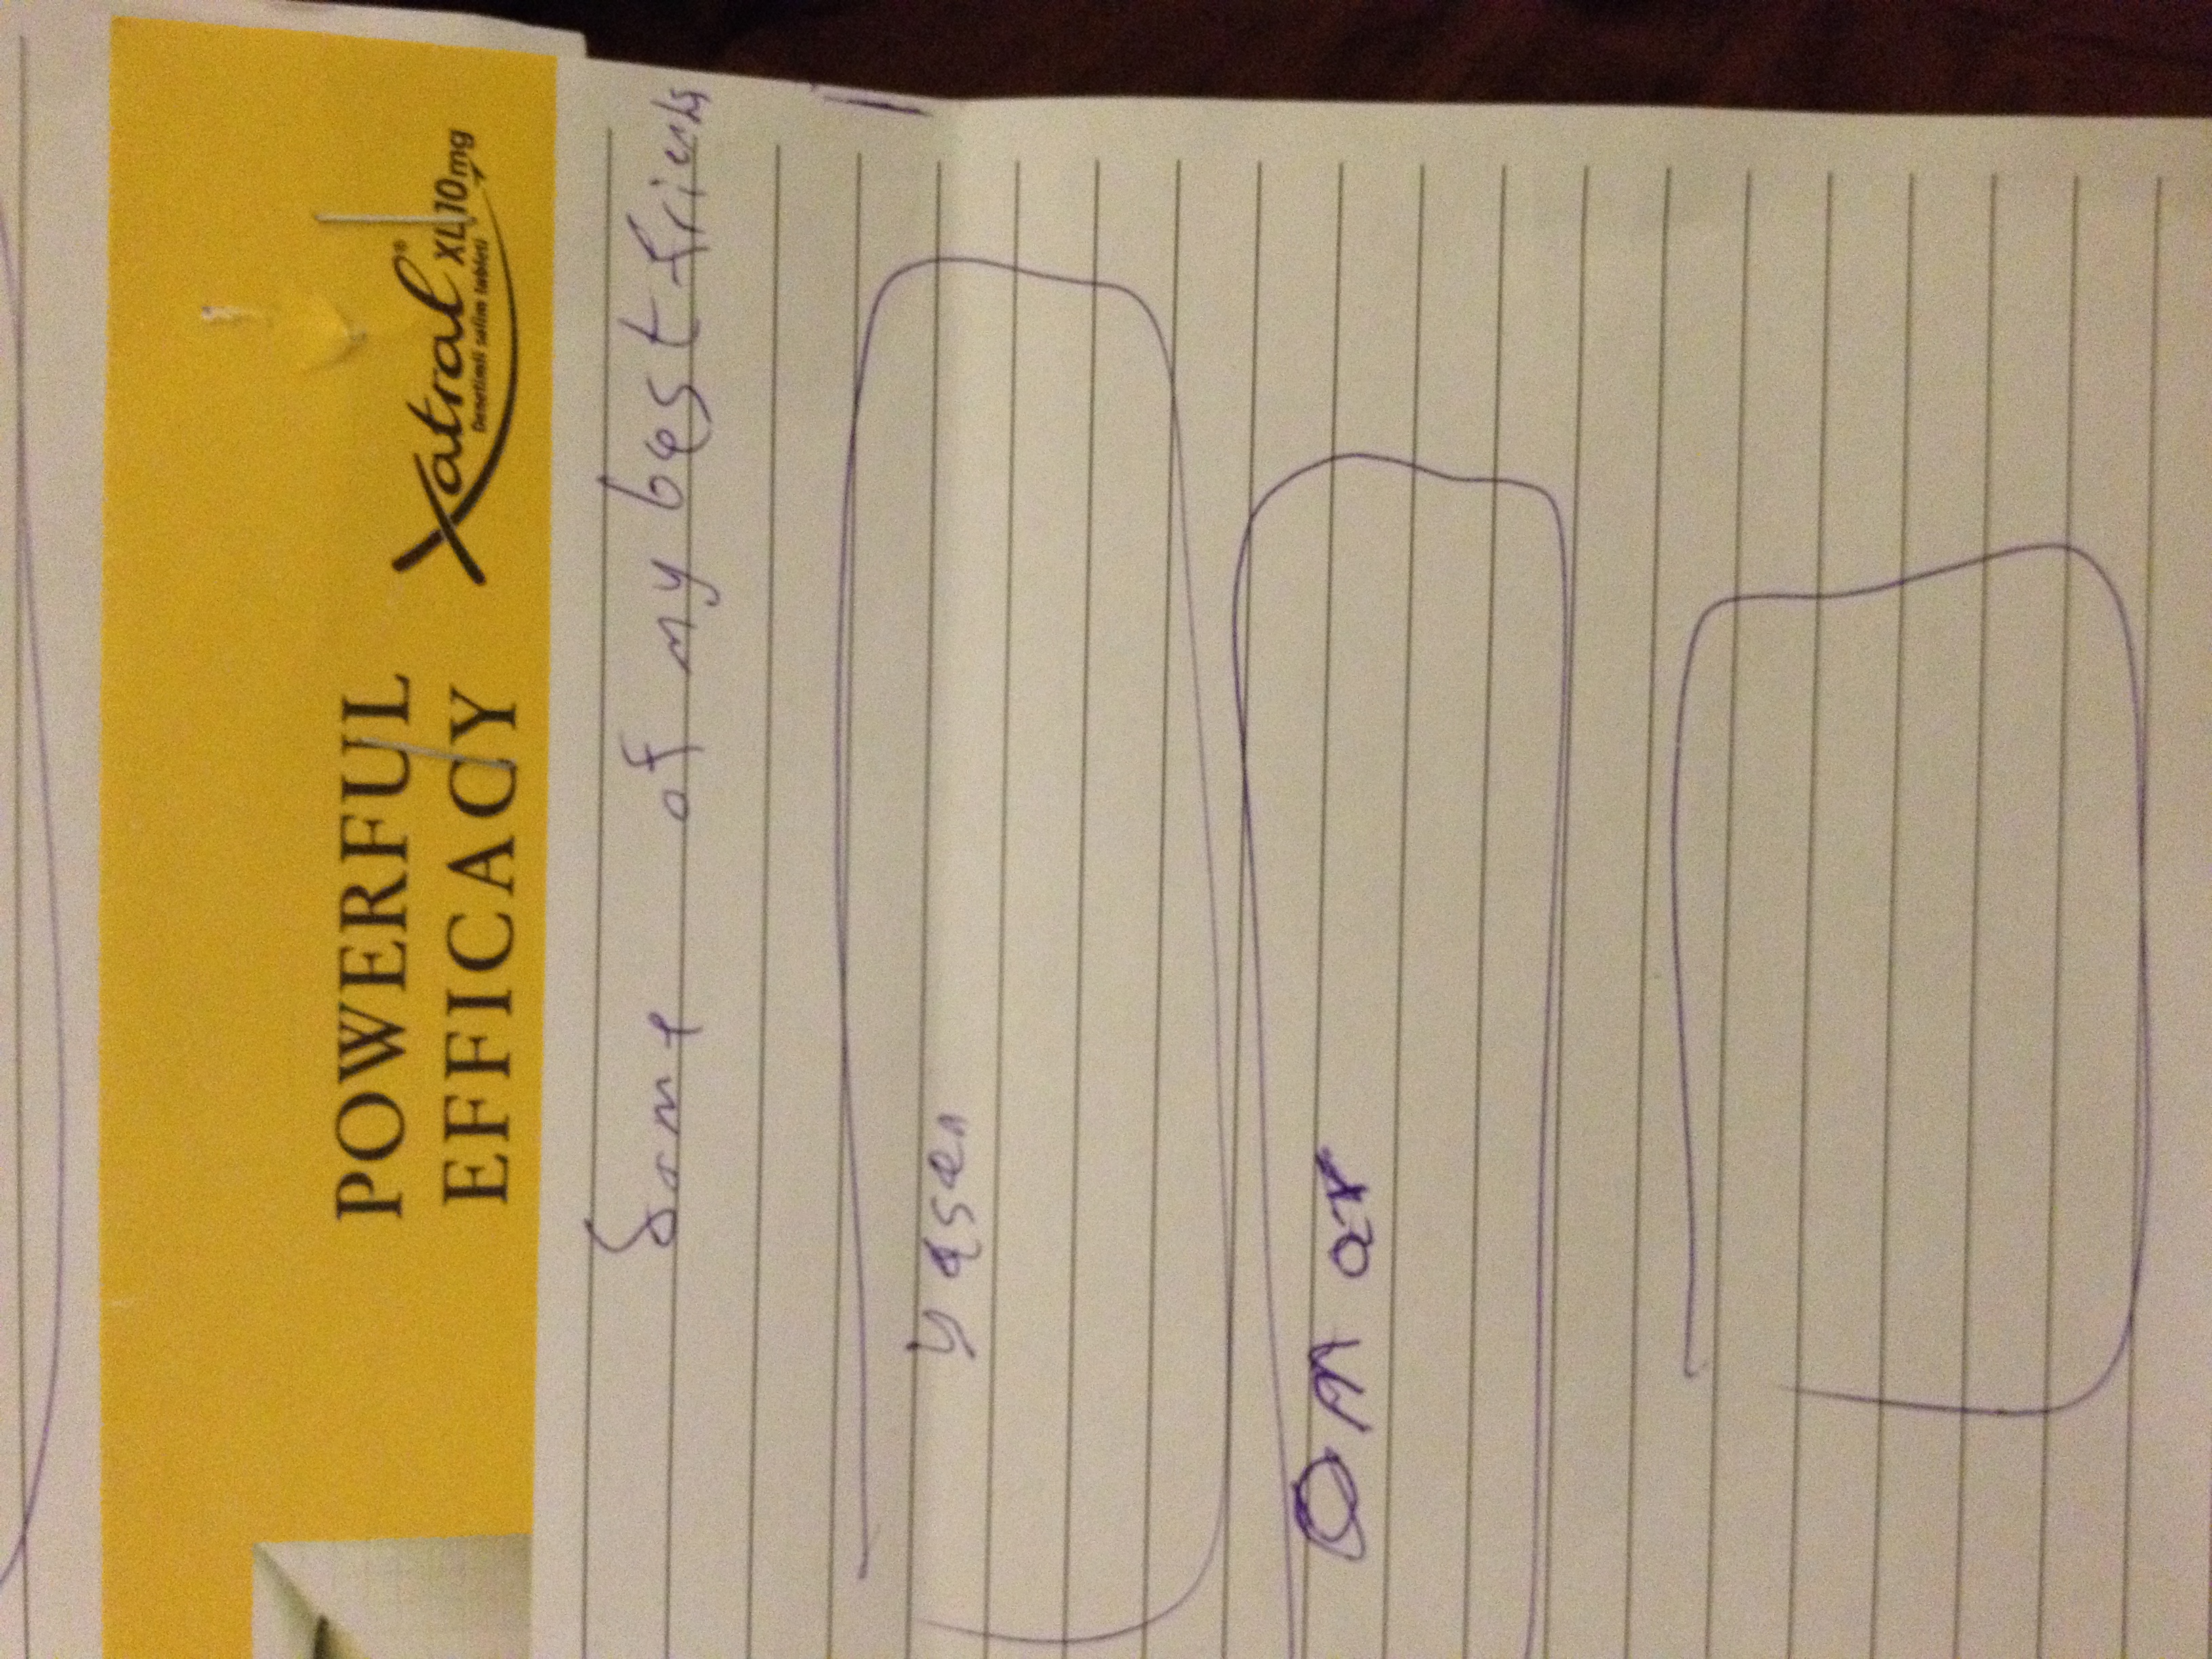 POWERFUL
EFFICACY
Xatral® XL 10 mg
Denetimli salım tableti
Some of my best friends
yasen
Omar